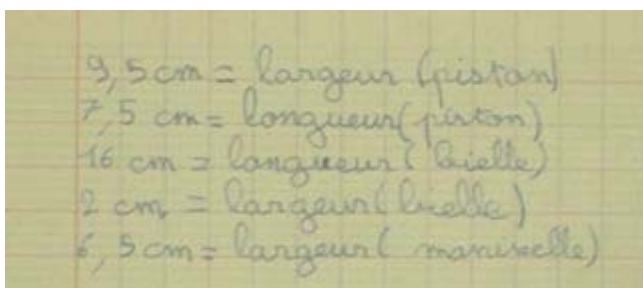 9,5 cm = largeur (piston)
7,5 cm = longueur (piston)
16 cm = longueur (bielle)
2 cm = largeur (bielle)
6,5 cm = largeur ( manivelle)